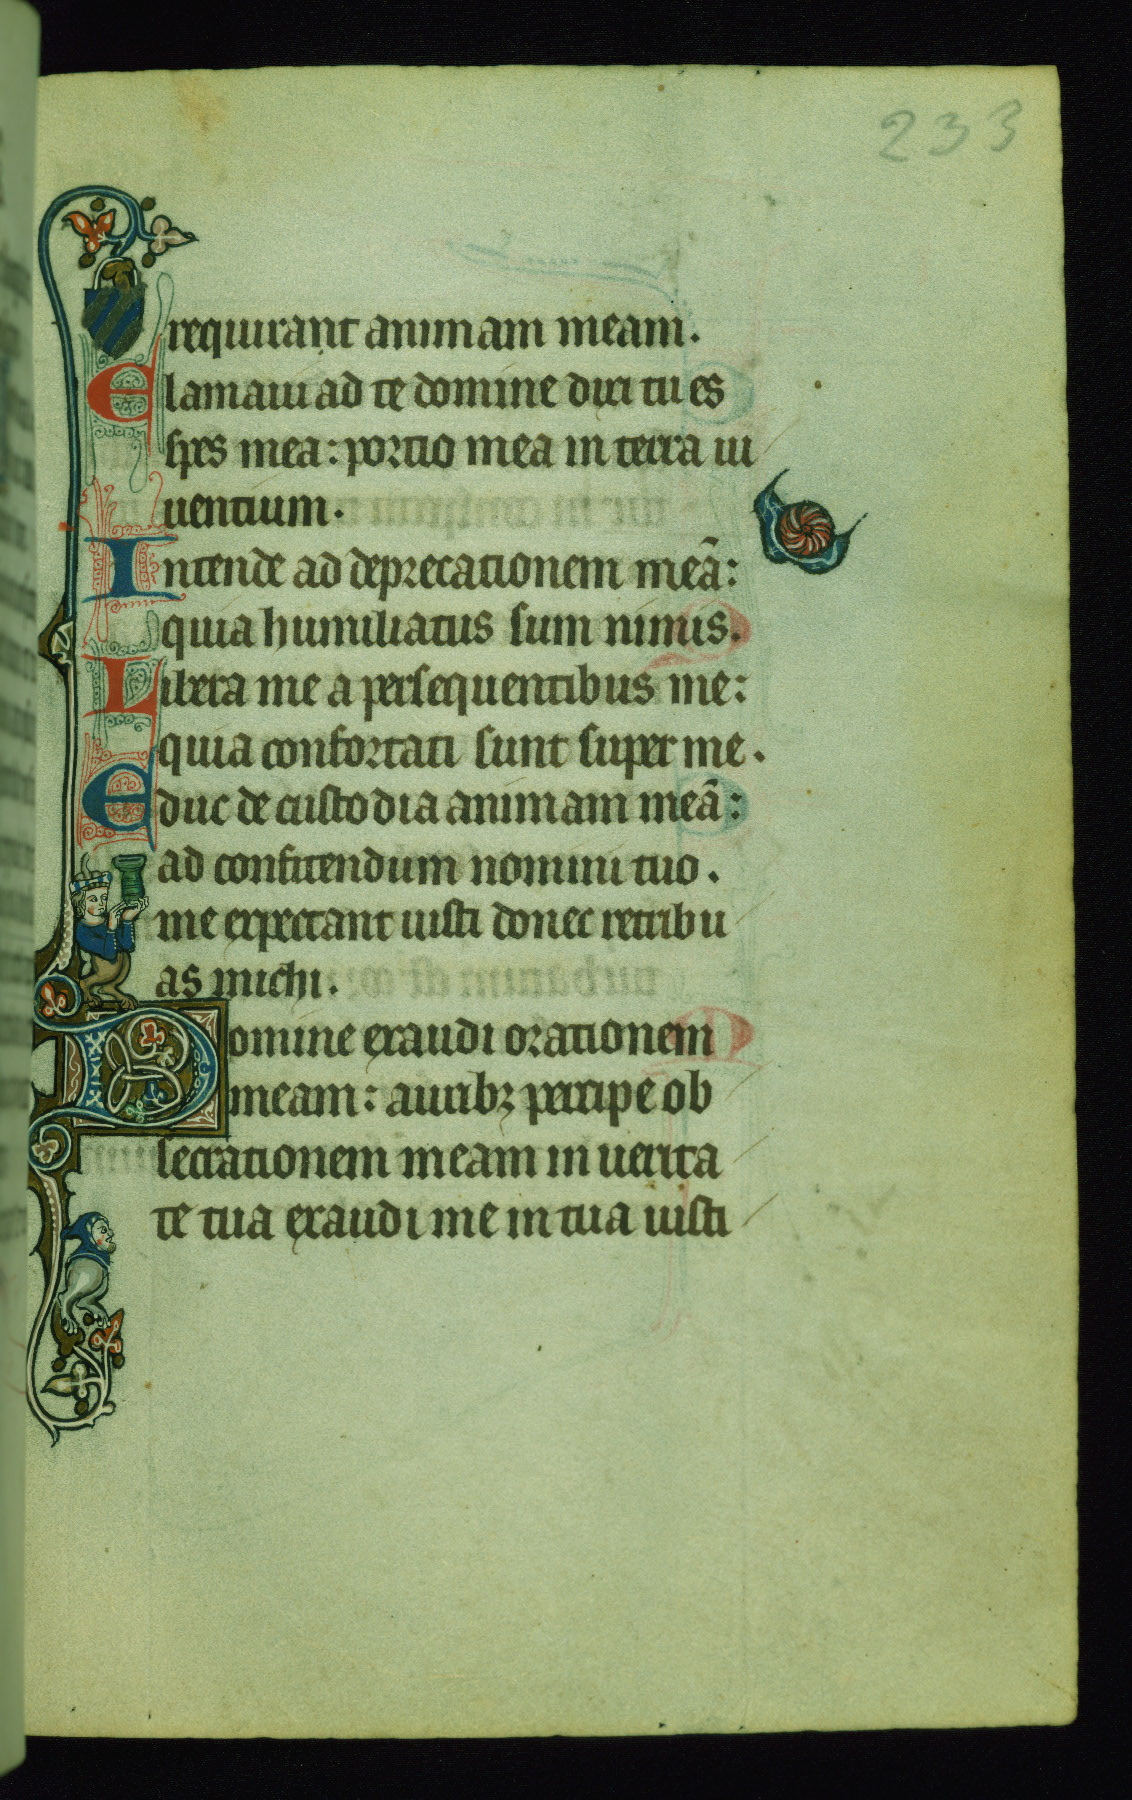 233
requirant animam meam.
Clamaui ad te domine dixi tu es
spes mea: portio mea in terra ui
uentium.
Intende ad deprecationem meã:
quia humiliatus sum nimis.
Libera me a persequentibus me:
quia confortati sunt super me.
Educ de custodia animam meã:
ad confitendum nomini tuo.
me expectant iusti donec retribu
as michi.
Domine exaudi orationem
meam: auribꝫ percipe ob
secrationem meam in uerita
te tua exaudi me in tua iusti